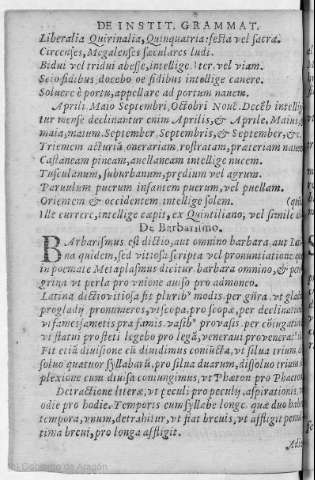 DE INSTIT. GRAMMAT.
Liberalia Quirinalia, Quinquatria: festa vel sacra.
Circenses, Megalenses sæculares ludi.
Bidui vel tridui abesse, intellige. Iter. vel viam.
Scio fidibus, docebo oe fidibus intellige canere.
Soluere è portu, appellare ad portum nauem.
Aprili Maio Septembri, Octobri Nouē. Decēb intelli
tur mense declinantur enim Aprilis, & Aprile, Maius,
maia, maium. September Septembris, & September, &c.
Triremem actuariā onerariam, rostratam, prætoriam nauem
Castaneam pineam, auellanam intellige nucem.
Tusculanum, suburbanum, prędium vel agrum.
Paruulum puerum infantem puerum, vel puellam.
Orientem & occidentem intellige solem.
Ille currere, intellige capit, ex Quintiliano, vel simile
De Barbarismo.
BArbarismus est dictio, aut omnino barbara, aut
na quidem, sed vitiosa scripta vel pronuntiatione
in poemate Metaplasmus dicitur barbara omnino, &
grina vt perla pro vnione auiso pro admoneo.
Latina dictio vitiosa fit plurib' modis. per
pro gladij pronumeres, vt scopa, pro scopæ, per
vt fames fametis pra famis. vasib' pro vasis. per
vt statui pro steti legebo pro legā, venerant pro
Fit etiā diuisione cū diuidimus coniūcta, vt silua trium
soluo quatuor syllabarū, pro silua duarum, dissoluo trium
plexione cum diuisa coniungimus, vt Phæton pro Phaeton
Detractione literæ, vt pęculi pro peculij, aspirationis,
odie pro hodie. Temporis cum syllabe longę quæ duo
tempora, vnum, detrahitur, vt fiat breuis, vt assligit
tima breui, pro longa affligit.
© Gobierno de Aragón